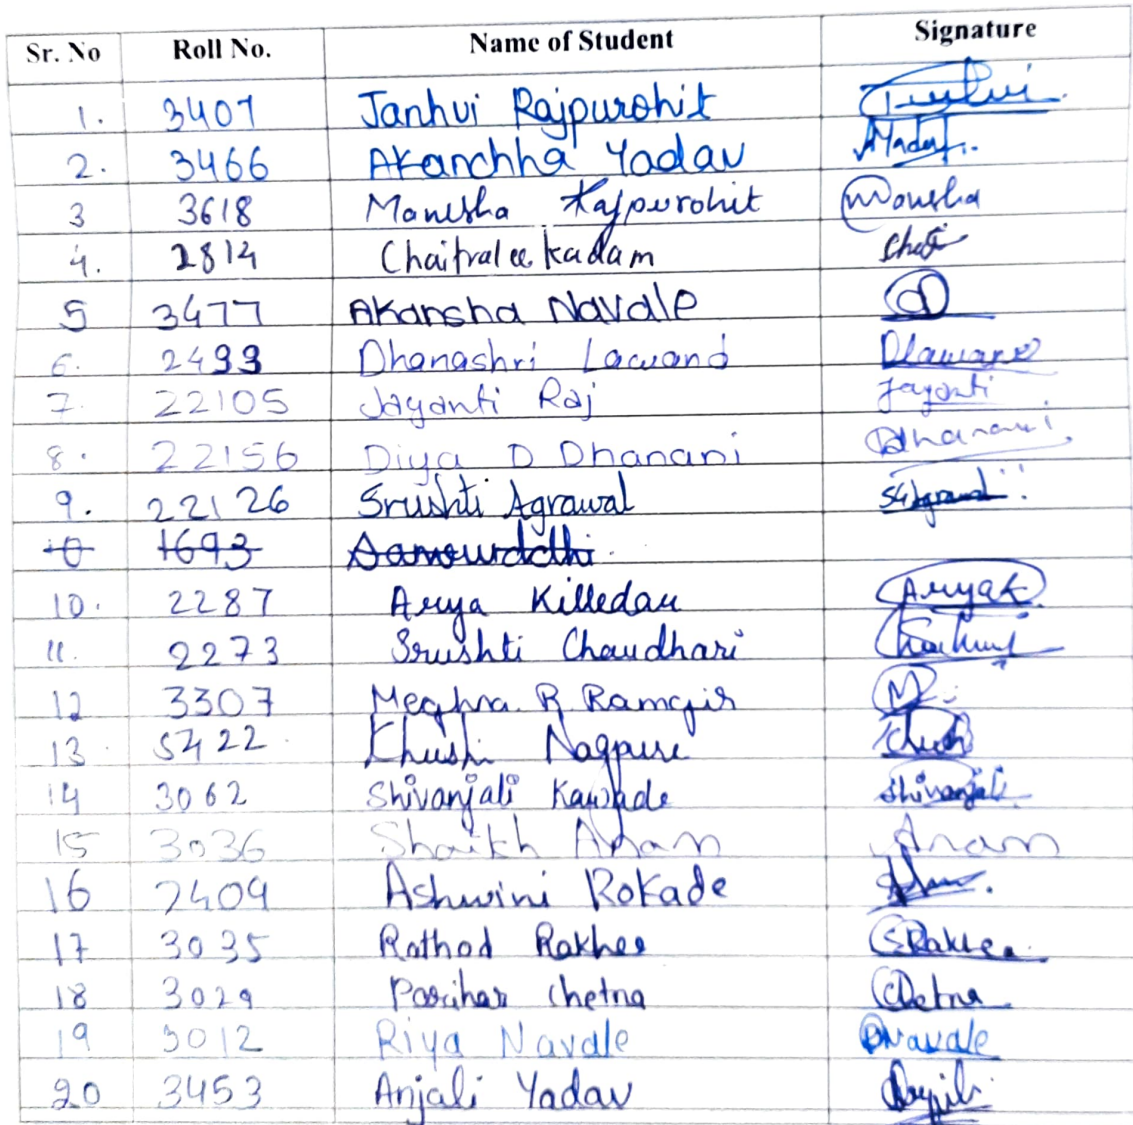 Sr. No Roll No. Name of Student Signature
1. 3407 Janhvi Rajpurohit
2. 3466 Akanchha Yadav
3 3618 Manisha Rajpurohit Manisha
4. 2814 Chaitralee kadam
5 3477 Akansha Navale
6. 2499 Dhanashri Lawand
7. 22105 Jayanti Raj Jayanti
8. 22156 Diya D Dhanani Dhanani
9. 22126 Srushti Agrawal SAgrawal
10 1693 Samruddhi
10. 2287 Arya Killedar AryaK
11. 2273 Srushti Chaudhari
12 3307 Meghna R. Ramgir M
13 5422 Khushi Nagpure
14 3062 Shivanjali Kawade Shivanjali
15 3036 Shaikh Anam Anam
16 2409 Ashwini Rokade
17 3035 Rathod Rakhee SRakhee
18 3029 Parihar Chetna Chetna
19 3012 Riya Navale RNavale
20 3453 Anjali Yadav